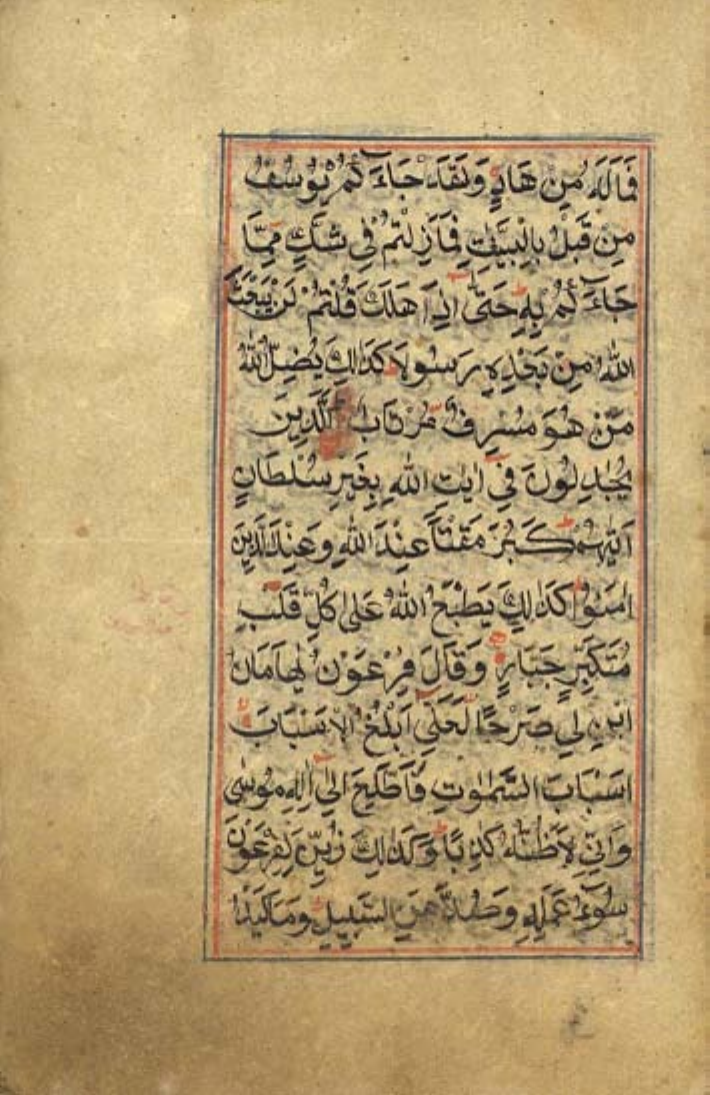 فَمَا لَهُ مِنْ هَادٍ وَلَقَدْ جَاءَكُمْ يُوسُفُ
مِنْ قَبْلُ بِالْبَيِّنٰتِ فَمَا زِلْتُمْ فِي شَكٍّ مِمَّا
جَاءَكُمْ بِهِ حَتّٰى اِذَا هَلَكَ قُلْتُمْ لَنْ يَبْعَثَ
اللهُ مِنْ بَعْدِهِ رَسُولًا كَذَالِكَ يُضِلُّ اللهُ
مَنْ هُوَ مُسْرِفٌ مُرْتَابٌ الَّذِينَ
يُجٰدِلُونَ فِي اٰيٰتِ اللهِ بِغَيْرِ سُلْطَانٍ
اَتٰيهُمْ كَبُرَ مَقْتًا عِنْدَ اللهِ وَعِنْدَ الَّذِينَ
اٰمَنُوا كَذَالِكَ يَطْبَعُ اللهُ عَلٰى كُلِّ قَلْبِ
مُتَكَبِّرٍ جَبَّارٍ وَقَالَ فِرْعَوْنُ يٰهَامَانُ
ابْنِ لِي صَرْحًا لَعَلِّي اَبْلُغُ الْاَسْبَابَ
اَسْبَابَ السَّمٰوٰتِ فَاَطَّلِعَ اِلٰى اِلٰهِ مُوسٰى
وَاِنِّي لَاَظُنُّهُ كَاذِبًا وَكَذَالِكَ زُيِّنَ لِفِرْعَوْنَ
سُوءُ عَمَلِهِ وَصُدَّ عَنِ السَّبِيلِ وَمَا كَيْدُ